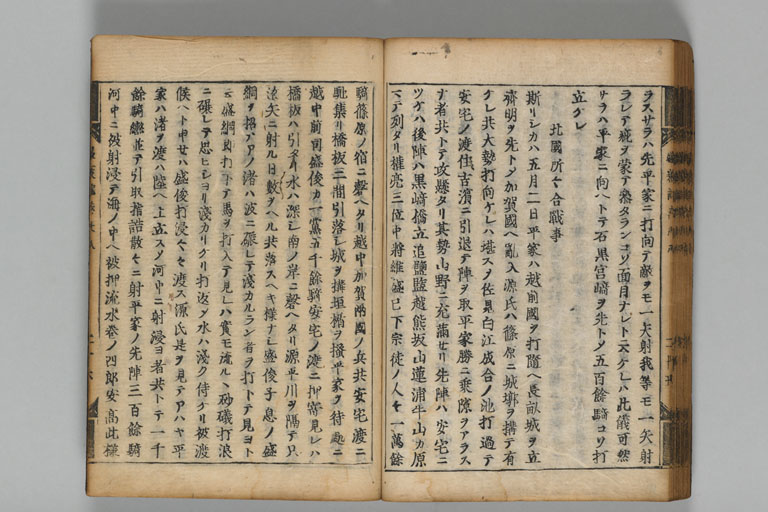 ラスサラハ先平家ニ打向テ敵ヲモ一矢射我等モ一矢射
ラレテ疵ヲ蒙テ参タランコソ面目ナレト云ケレハ此儀可然
サラハ平家ニ向ヘトテ石黒宮崎ヲ先トメ五百餘騎コソ打
立ケレ
北國所々合戦事
斯リシカハ五月二日平家ハ越前國ヲ打隨ヘ長畝城ヲ立
齊明ヲ先トメ加賀國ヘ亂入源氏ハ篠原ニ城郭ヲ搆テ有
ケレ共大勢打向ケレハ堪スメ佐見白江成合ノ池打過テ
安宅ノ渡住吉濱ニ引退テ陣ヲ取平家勝ニ乗隙ヲアラス
ナ者共トテ攻懸タリ其勢山野ニ充滿セリ先陣ハ安宅ニ
ツケハ後陣ハ黒崎橋立追塩塩越熊坂山蓮浦牛山カ原
マテ列タリ權亮三位中將維盛已下宗徒ノ人々一萬餘
騎篠原ノ宿ニ磬ヘタリ越中加賀兩國ノ兵共安宅渡ニ
馳集リ橋板三間引落シ城ヲ搆垣楯ヲ掻平家ヲ待處ニ
越中前司盛俊カ一黨五千餘騎安宅ノ渡ニ押寄見レハ
橋板ハ引タリ水ハ深シ南ノ岸ニ磬ヘタリ源平川ヲ隔テ只
遠矢ニ射ル日數ヲヘル共落スヘキ様ナシ盛俊子息ノ盛
綱ヲ招
ノ渚ハ波ニ碾レテ淺カルラン者ヲ打下テ見ヨト
云盛綱
打下テ馬ヲ打入テ見レハ實モ流ルヽ砂礒打浪
ニ碾レテ思ヒシヨリ淺カリケリ打返メ水ハ淺ク侍ケリ被渡
候ヘト申セハ盛俊打浸々々渡ス源氏是ヲ見テアハヤ平
家ハ渚ヲ渡ハ陸ヘ上立スメ河中ニ射浸ヨ者共トテ一千
餘騎轡並テ引取指詰散々ニ射平家ノ先陣三百餘騎
河中ニ被射浸テ海ノ中ヘ被押流水巻ノ四郎安高此様